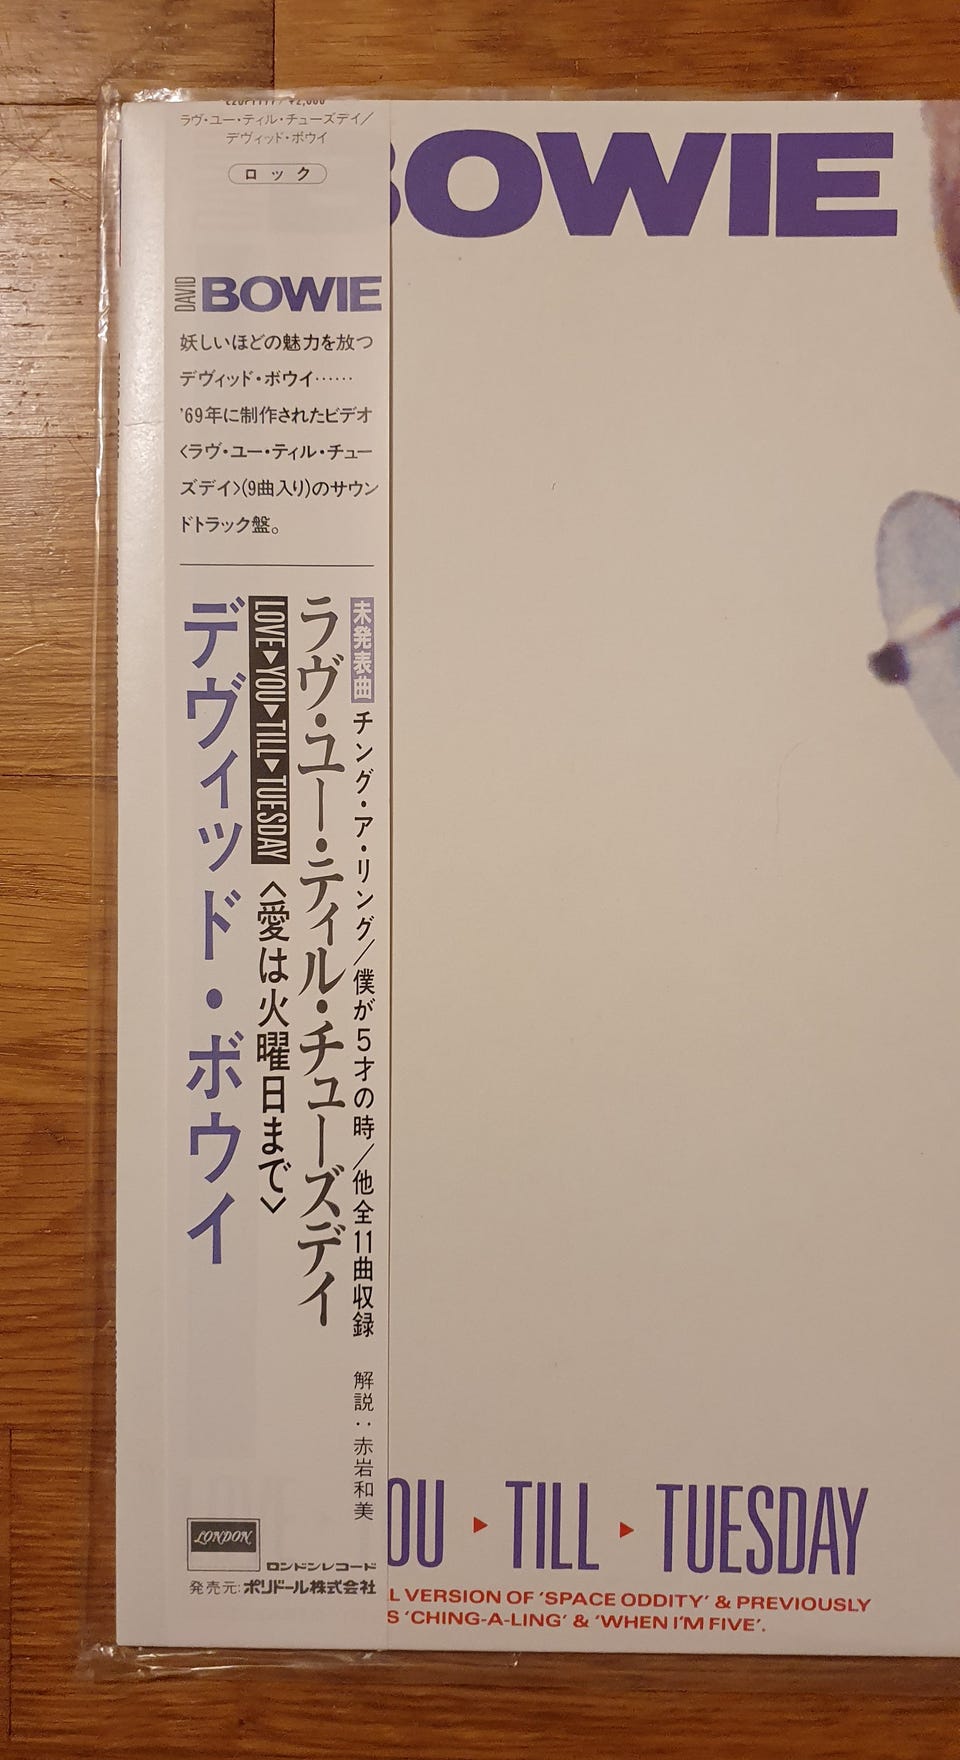 ラヴ・ユー・ティル・チューズデイ/
デヴィッド・ボウイ
ロック
BOWIE
DAVID BOWIE
妖しいほどの魅力を放つ
デヴィッド・ボウイ……
'69年に制作されたビデオ
〈ラヴ・ユー・ティル・チュー
ズデイ〉(9曲入り)のサウン
ドトラック盤。
未発表曲 チング・ア・リング/僕が5才の時/他全11曲収録
解説:赤岩和美
ラヴ・ユー・ティル・チューズデイ
LOVE▶YOU▶TILL▶TUESDAY 〈愛は火曜日まで〉
デヴィッド・ボウイ
LONDON
ロンドンレコード
発売元:ポリドール株式会社
OU ▶ TILL ▶ TUESDAY
L VERSION OF 'SPACE ODDITY' & PREVIOUSLY
S 'CHING-A-LING' & 'WHEN I'M FIVE'.